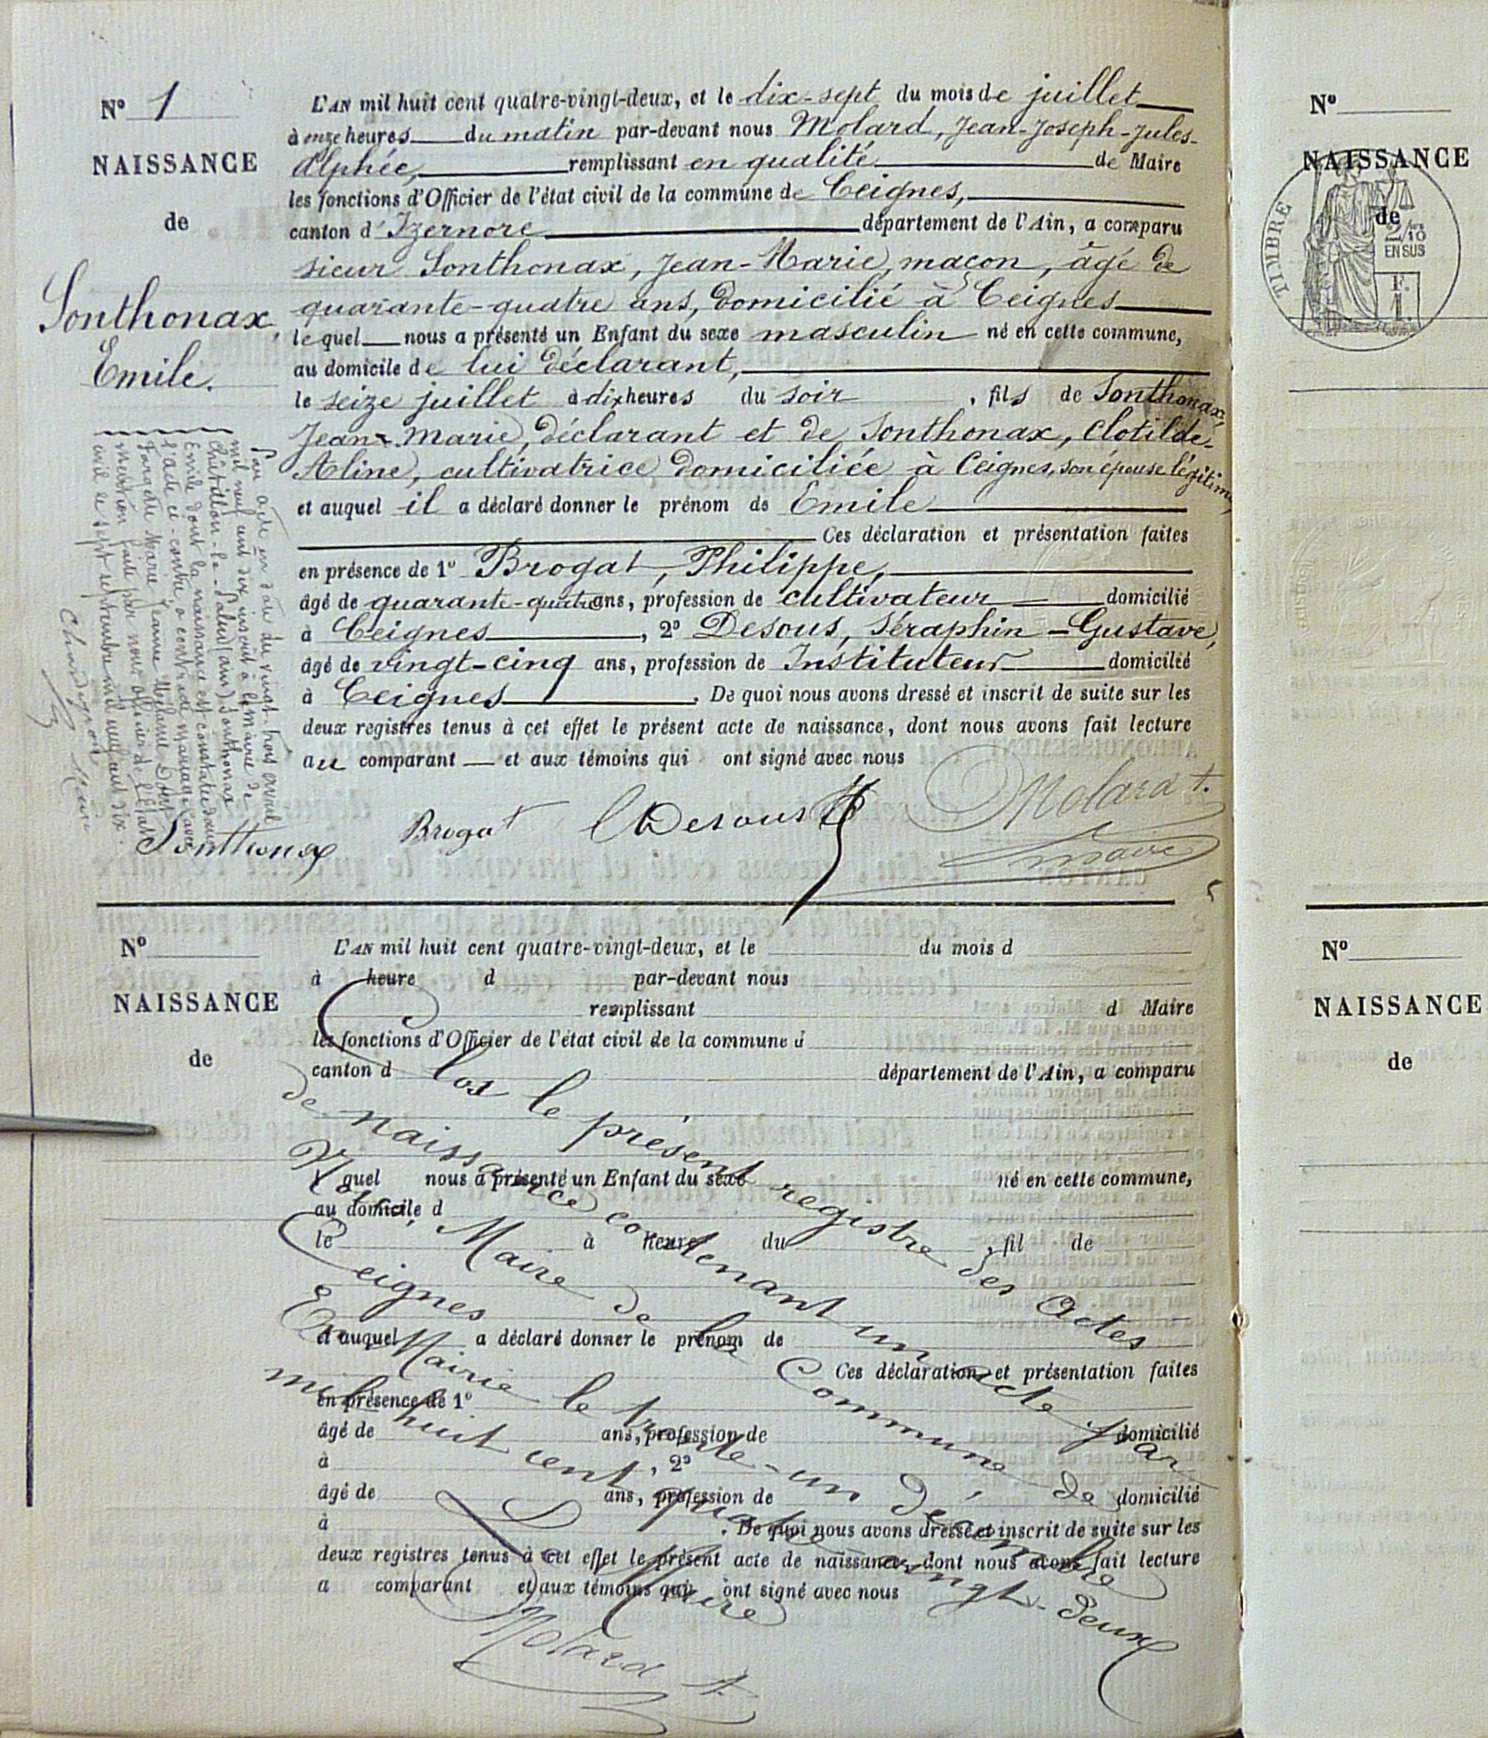 N° 1
NAISSANCE
de
Sonthonax,
Emile.
L'AN mil huit cent quatre-vingt-deux, et le dix-sept du mois de juillet
à onze heures du matin par-devant nous Molard, Jean-Joseph-Jules-
Alphée, remplissant en qualité de Maire
les fonctions d'Officier de l'état civil de la commune de Ceignes,
canton d'Izernore département de l'Ain, a comparu
sieur Sonthonax, Jean-Marie, maçon, âgé de
quarante-quatre ans, domicilié à Ceignes
lequel nous a présenté un Enfant du sexe masculin né en cette commune,
au domicile de lui déclarant,
le seize juillet à dix heures du soir, fils de Sonthonax,
Jean-Marie, déclarant et de Sonthonax, Clotilde-
Aline, cultivatrice domiciliée à Ceignes, son épouse légitime,
et auquel il a déclaré donner le prénom de Emile
Ces déclaration et présentation faites
en présence de 1° Brogat, Philippe,
âgé de quarante-quatre ans, profession de cultivateur domicilié
à Ceignes, 2° Desous, Séraphin-Gustave,
âgé de vingt-cinq ans, profession de Instituteur domicilié
à Ceignes. De quoi nous avons dressé et inscrit de suite sur les
deux registres tenus à cet effet le présent acte de naissance, dont nous avons fait lecture
au comparant et aux témoins qui ont signé avec nous
Par acte en date du vingt-trois avril
mil neuf cent dix inscrit à la mairie de
Châtillon-la-Palud (Ain) Sonthonax
Emile dont la naissance est constatée dans
l'acte ci-contre a contracté mariage avec
Marie Jeanne Mélanie
Mention faite par nous officier de l'État
civil le sept septembre mil neuf cent dix
Sonthonax Brogat Desous Molard A.
maire
N°
NAISSANCE
de
L'AN mil huit cent quatre-vingt-deux, et le du mois d
à heure d par-devant nous
remplissant d Maire
les fonctions d'Officier de l'état civil de la commune d
canton d département de l'Ain, a comparu
quel nous a présenté un Enfant du sexe né en cette commune,
au domicile d
le à heure du , fil de
et auquel a déclaré donner le prénom de
Ces déclaration et présentation faites
en présence de 1°
âgé de ans, profession de domicilié
à , 2°
âgé de ans, profession de domicilié
à . De quoi nous avons dressé et inscrit de suite sur les
deux registres tenus à cet effet le présent acte de naissance, dont nous avons fait lecture
a comparant et aux témoins qui ont signé avec nous
Clos le présent registre des Actes
de naissance contenant un acte par
Nous, Maire de la Commune de
Ceignes
En Mairie le trente-un décembre
mil huit cent quatre-vingt-deux
Le Maire
Molard A.
N°
NAISSANCE
de
TIMBRE
2/10
EN SUS
F.
1.
N°
NAISSANCE
de